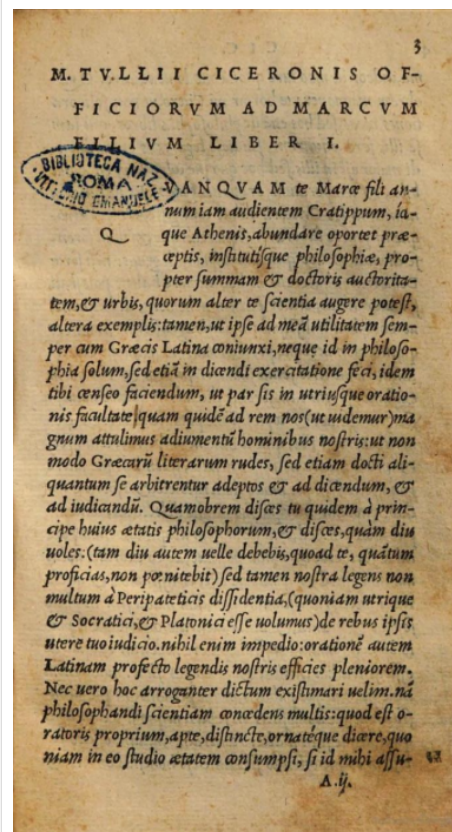 3
M. TVLLII CICERONIS OF-
FICIORVM AD MARCVM
FILIVM LIBER I.
BIBLIOTECA NAZ.
ROMA
VITTORIO EMANUELE
Q
VANQVAM te Marce fili an-
num iam audientem Cratippum, íd-
que Athenis, abundare oportet præ-
ceptis, institutísque philosophiæ, pro-
pter summam & doctoris auctorita-
tem, & urbis, quorum alter te scientia augere potest,
altera exemplis: tamen, ut ipse ad meã utilitatem sem-
per cum Græcis Latina coniunxi, neque id in philoso-
phia solum, sed etiã in dicendi exercitatione feci, idem
tibi censeo faciendum, ut par sis in utriusque oratio-
nis facultate quam quidẽ ad rem nos (ut uidemur) ma
gnum attulimus adiumentũ hominibus nostris: ut non
modo Græcarũ literarum rudes, sed etiam docti ali-
quantum se arbitrentur adeptos & ad dicendum, &
ad iudicandũ. Quamobrem disces tu quidem à prin-
cipe huius ætatis philosophorum, & disces, quàm diu
uoles: (tam diu autem uelle debebis, quoad te, quãtum
proficias, non pœnitebit) sed tamen nostra legens non
multum à Peripateticis dissidentia, (quoniam utrique
& Socratici, & Platonici esse uolumus) de rebus ipsis
utere tuo iudicio. nihil enim impedio: orationẽ autem
Latinam profecto legendis nostris efficies pleniorem.
Nec uero hoc arroganter dictum existimari uelim. nã
philosophandi scientiam concedens multis: quod est o-
ratoris proprium, apte, distincte, ornatéque dicere, quo
niam in eo studio ætatem consumpsi, si id mihi assu-
A.ij.